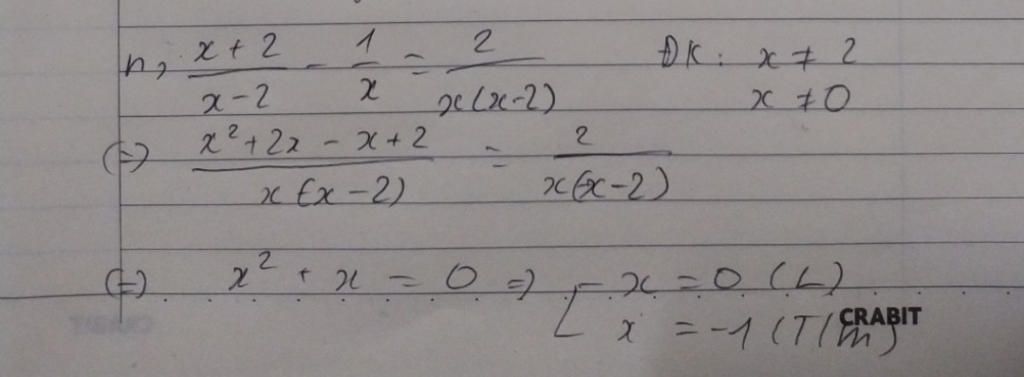 n, (x+2)/(x-2) - 1/x = 2/(x(x-2)) ĐK: x ≠ 2
x ≠ 0
(=) (x²+2x-x+2)/(x(x-2)) = 2/(x(x-2))
(=) x² + x = 0 => [ x = 0 (L)
x = -1 (T/m)
CRABIT